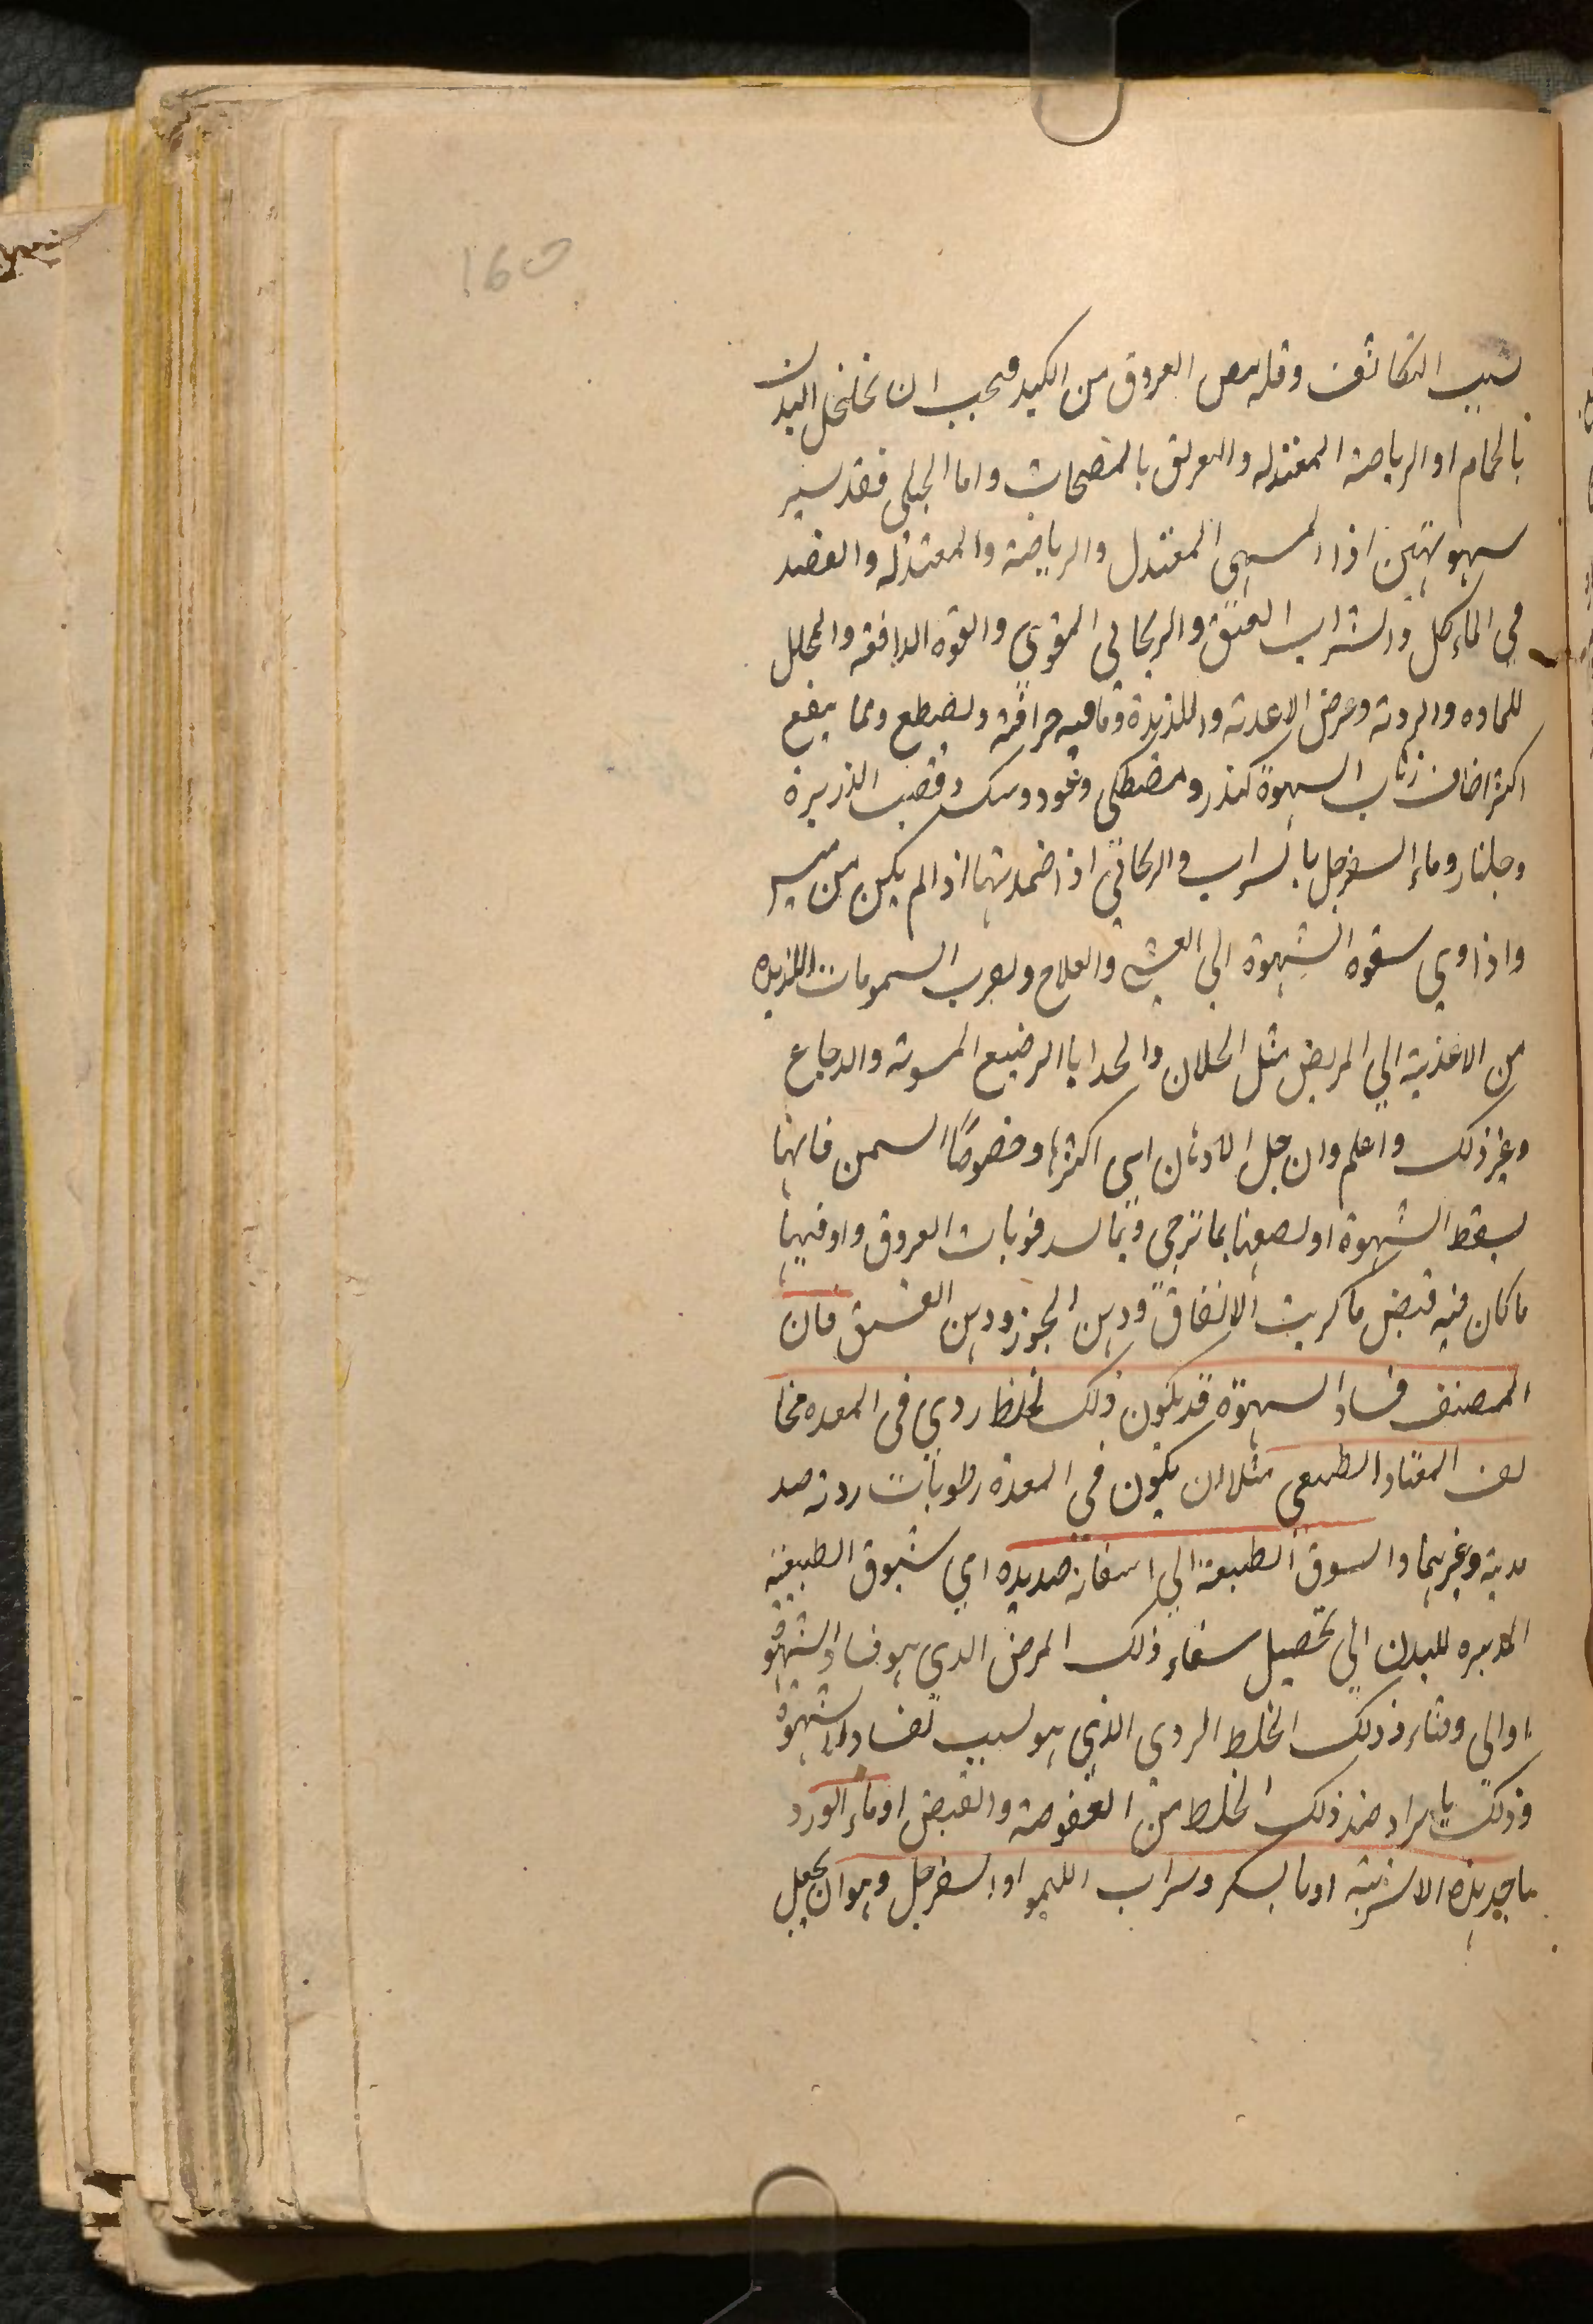 160
بسبب التكاثف وقله مص العروق من الكبد فيجب ان تخلخل البدن
بالحمام او الرياضة المعتدله والتعريق بالمنضجات واما الجبلى فقد سير
سهوتهين اذا المسهى المعتدل والرياضة والمعتدله والقصد
في الماء كل والشراب العتيق والريحاني المقوي والقوه الدافعه والمحلل
للماده والردية وعرض الاغدية واللذيذة وما فيه حرافة وتقطع ومما ينفع
اكثر اضاف ذهاب السهوة كندر ومصطكى وعود وسك وقصب الذريرة
وجلنار وماء السفرجل بالسراب والريحاني اذا ضمدتها اذا لم يكن من سير
واذا وي سقوه الشهوة الي الغشي والعلاج وتقرب السمومات اللذيذه
من الاغذية الي المريض مثل الحلان والجدايا الرضيع المسوية والدجاج
وغير ذلك واعلم وان جل الادهان اى اكثرها وخصوصًا السمن فانها
يسقط الشهوة او تضعفها بما ترخي وبما تسد فوهات العروق واوفيها
ما كان فيه قبض ما كزيت الانفاق ودهن الجوز ودهن الفستق فان
المصنف فساد السهوة قد يكون ذلك لخلط ردي في المعده مخا
لف المعتاد الطبيعى مثلا ان يكون في المعدة رطوبات ردية صد
يدية وغيرها والسوق الطبيعة الي اسفائه صديده اي شبوق الطبيعية
المدبره للبدن الي تحصيل سفاء ذلك المرض الدي هو فساد الشهوة
او الى وفناء ذلك الخلط الردى الذي هو لسبب لفساد الشهوة
وذلك بايراد ضد ذلك الخلط من العفوصة والقبض او ماء الورد
ماجد هذه الاشربة او ما بسكر وسراب الليمو او السفرجل وهو ان يجعل